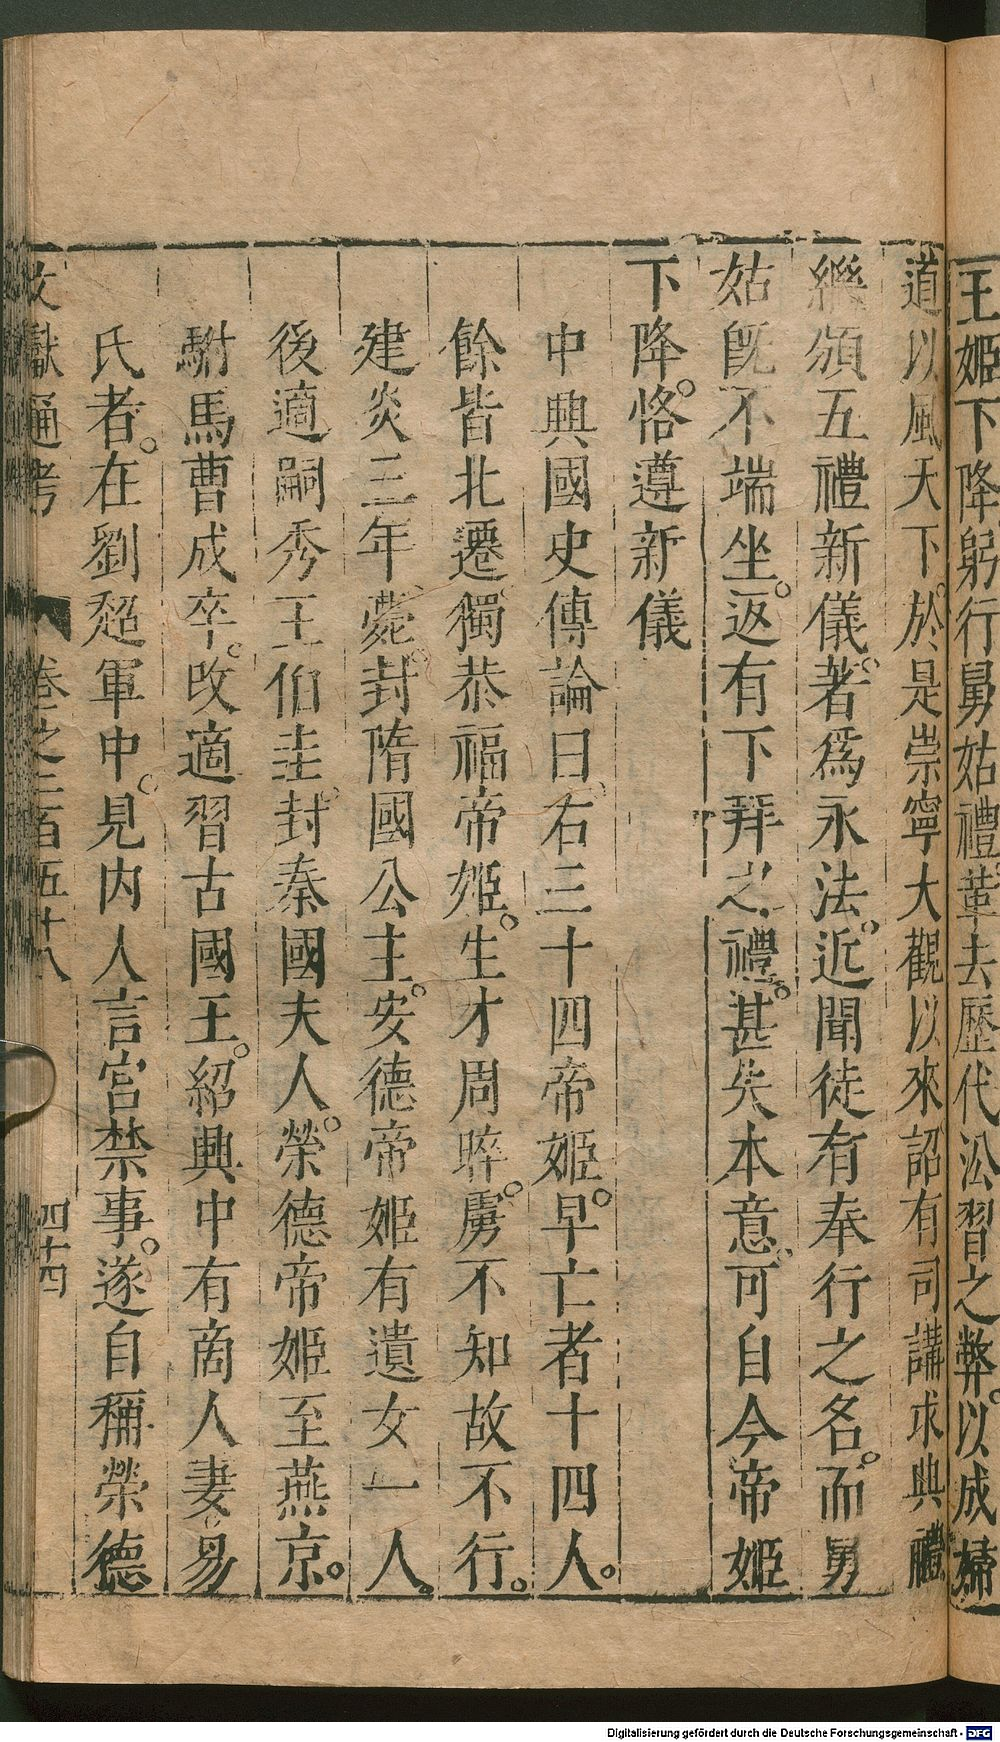 王姬下降躬行舅姑禮革去歷代㳂習之弊以成婦
道以風天下於是崇寧大觀以來詔有司講求典禮
繼頒五禮新儀著爲永法近聞徒有奉行之名而舅
姑旣不端坐返有下拜之禮甚失本意可自今帝姬
下降恪遵新儀
中興國史傳論曰右三十四帝姬早亡者十四人
餘皆北遷獨恭福帝姬生才周晬虜不知故不行
建炎三年薨封隋國公主安德帝姬有遺女一人
後適嗣秀王伯圭封秦國夫人榮德帝姬至燕京
駙馬曹成卒改適習古國王紹興中有商人妻易
氏者在劉超軍中見內人言宮禁事遂自稱榮德
文獻通考 卷之二百五十八 四十四
Digitalisierung gefördert durch die Deutsche Forschungsgemeinschaft - DFG